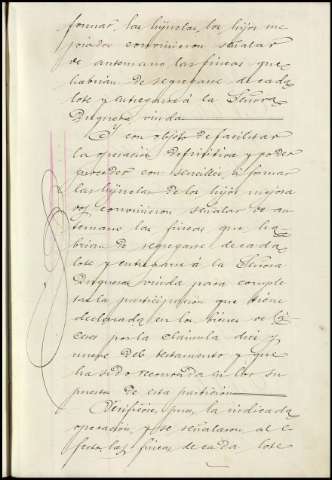 formar, las hijuelas, los hijos me
jorados convinieron señalar
de antemano las fincas que
habrian de segregarse de cada
lote y entregarse á la Señora
Duquesa viuda
Y con objeto de facilitar
la operación definitiva y poder
proceder con sencillez á formar
las hijuelas de los hijos mejora
dos, convinieron señalar de an-
temano las fincas que ha-
brian de segregarse de cada
lote y entregarse á la Señora
Duquesa viuda para comple
tar la participación que tiene
declarada en los bienes de
por la cláusula diez y
nueve del testamento y que
ha sido reconocida en los su
puestos de esta partición
Verificóse, pues, la indicada
operación, y se señalaron al e-
fecto, las fincas de cada lote